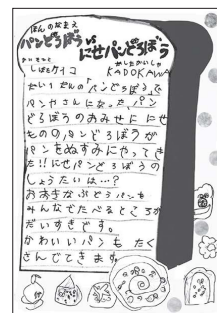 ほんのなまえ
パンどろぼう vs にせパンどろぼう
かいたひと
しばたケイコ
かしたかいしゃ
KADOKAWA
パンやさんになった、パン
どろぼうのおみせににせ
もののパンどろぼうが
パンをぬすみにやってき
た!!にせパンどろぼうの
しょうたいは…?
おおきなぶどうパンも
みんなでたべるところが
だいすきです。
かわいいパンも たく
さんでてきます。